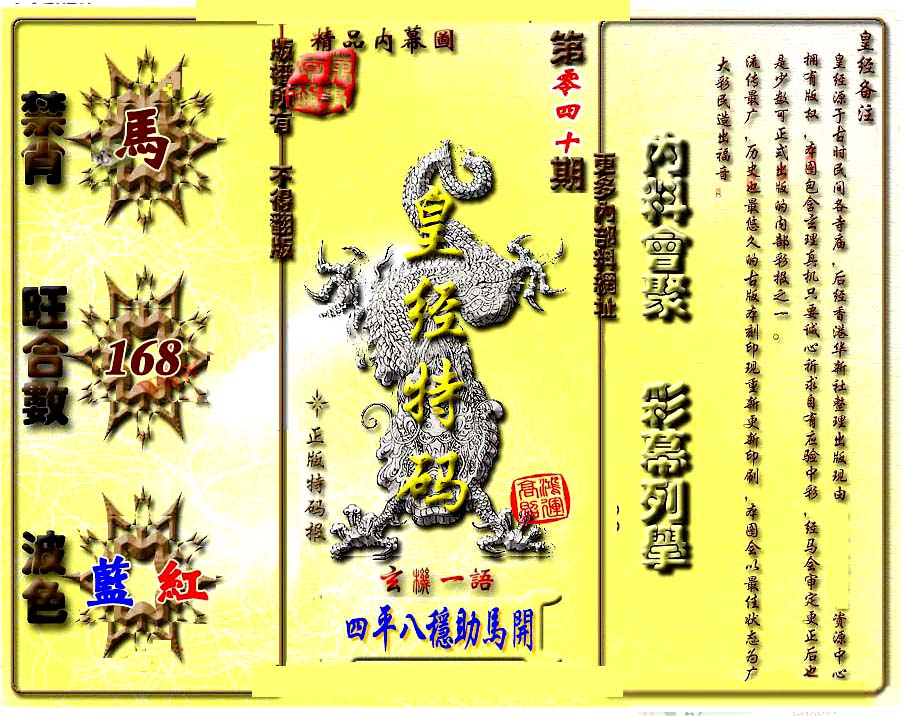 禁肖
馬
旺合數
168
波色
藍 紅
版權所有 不得翻版
精品内幕圖
第零四十期
皇经特码
正版特码报
鴻運高照
玄機一語
四平八穩助馬開
更多内部料網址
内料會聚
彩幕列舉
皇经备注
皇经源于古时民间各寺庙，后经香港华新社整理出版现由 资源中心
拥有版权，本图包含玄理真机只要诚心祈求自有应验中彩，经马会审定更正后也
是少数可正式出版的内部彩报之一。
流传最广，历史也最悠久的古版本刻印现重新更新印刷，本图会以最佳状态为广
大彩民造出福音